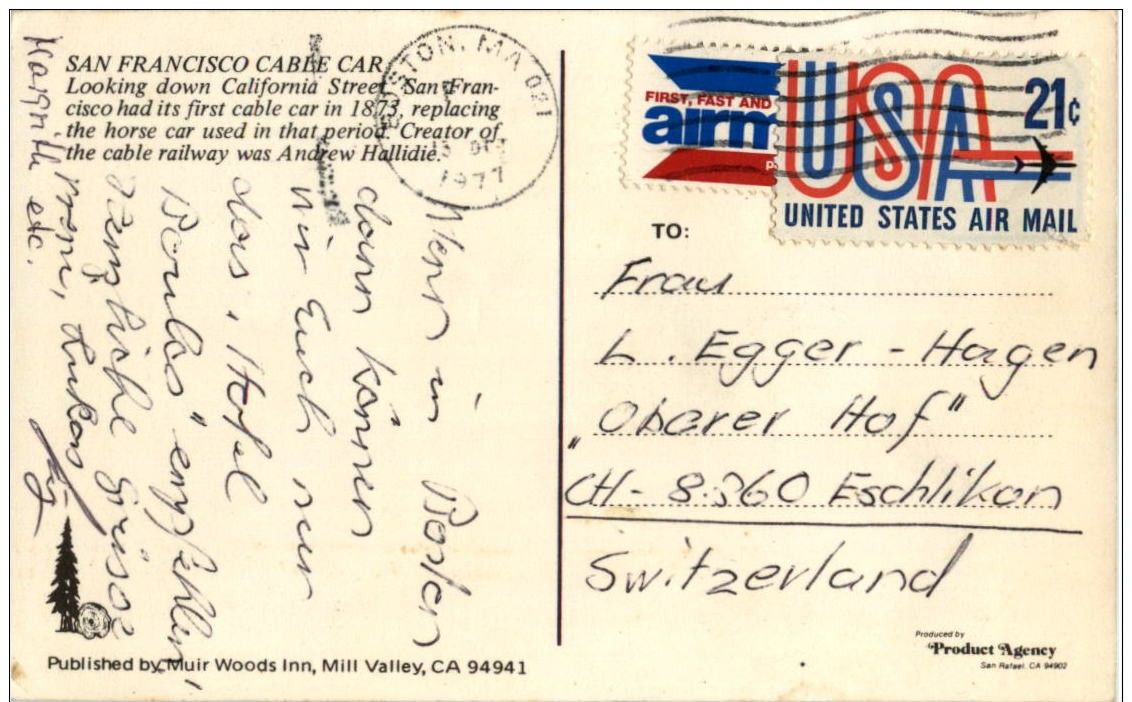 SAN FRANCISCO CABLE CAR
Looking down California Street. San Fran-
cisco had its first cable car in 1873, replacing
the horse car used in that period. Creator of
the cable railway was Andrew Hallidie.
Wenn in Boston
dann können
wir Euch nur
das Hotel
empfehlen
Herzliche Grüsse
Lukas
etc.
STON, MA 021
1977
FIRST, FAST AND
airm
USA
21¢
UNITED STATES AIR MAIL
TO:
Frau
L. Egger-Hagen
"Oberer Hof"
CH-8360 Eschlikon
Switzerland
Published by Muir Woods Inn, Mill Valley, CA 94941
Produced by
Product Agency
San Rafael, CA 94902